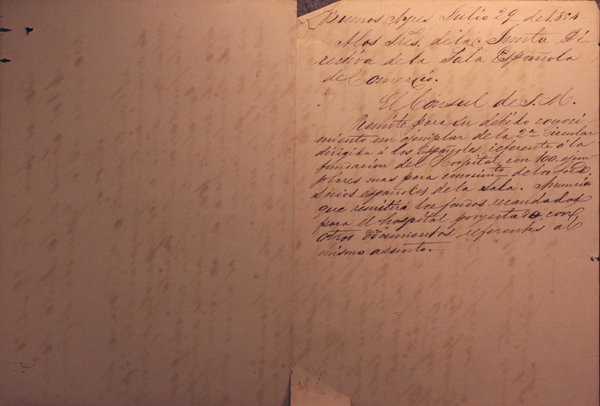 Buenos Ayres Julio 29 de 1854
A los Sres. de la Junta Di
rectiva de la Sala Española
de Comercio.
El Consul de S. M.
Remite para su debido conoci
miento un ejemplar de la 2ª Circular
dirigida á los Españoles referente á la
fundacion del Hospital, con 100 ejem
plares mas para conocimto de los Sres.
Socios españoles de la Sala. Anuncia
que remitirá los fondos recaudados
para el hospital proyectado con
otros documentos referentes al
mismo asunto.